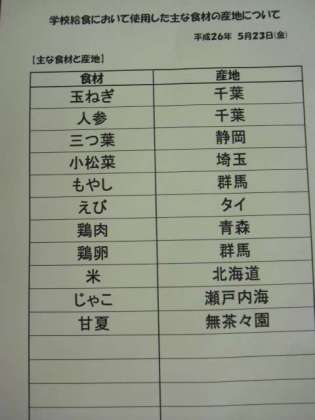 学校給食において使用した主な食材の産地について
平成26年 5月23日(金)
【主な食材と産地】
食材 産地
玉ねぎ 千葉
人参 千葉
三つ葉 静岡
小松菜 埼玉
もやし 群馬
えび タイ
鶏肉 青森
鶏卵 群馬
米 北海道
じゃこ 瀬戸内海
甘夏 無茶々園